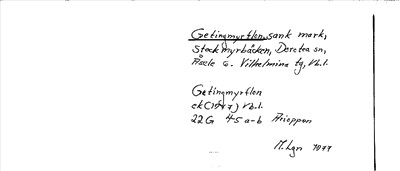 Getingmyrflon, sank mark,
Stockmyrbäcken, Dorotea sn,
Åsele o. Vilhelmina tg, Vb.l.
Getingmyrflon
ek (1947) Vb.l.
22G 45 a-b Arieppen
M. Lgn 1977